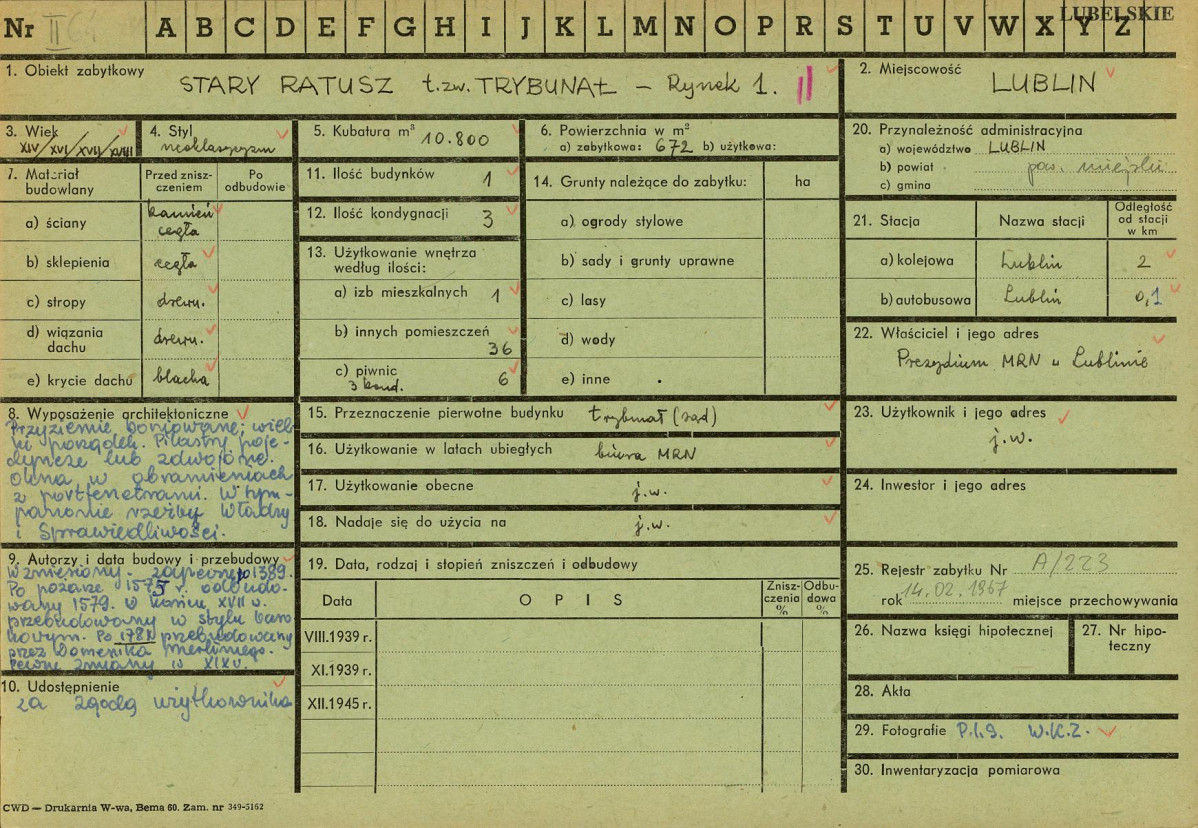 LUBELSKIE
Nr II 64 A B C D E F G H I J K L M N O P R S T U V W X Y Z
1. Obiekt zabytkowy
STARY RATUSZ t.zw. TRYBUNAŁ – Rynek 1. II
2. Miejscowość
LUBLIN
3. Wiek
XIV/XVI/XVII/XVIII
4. Styl
neoklasycyzm
5. Kubatura m³ 10.800
6. Powierzchnia w m²
a) zabytkowa: 672 b) użytkowa:
20. Przynależność administracyjna
a) województwo LUBLIN
b) powiat pow. miejski
c) gmina
7. Materiał budowlany
Przed zniszczeniem
Po odbudowie
a) ściany kamień cegła
b) sklepienia cegła
c) stropy drewn.
d) wiązania dachu drewn.
e) krycie dachu blacha
11. Ilość budynków 1
12. Ilość kondygnacji 3
13. Użytkowanie wnętrza
według ilości:
a) izb mieszkalnych 1
b) innych pomieszczeń
36
c) piwnic 6
3 kond.
14. Grunty należące do zabytku: ha
a) ogrody stylowe
b) sady i grunty uprawne
c) lasy
d) wody
e) inne
21. Stacja
Nazwa stacji
Odległość
od stacji
w km
a) kolejowa Lublin 2
b) autobusowa Lublin 0,1
22. Właściciel i jego adres
Prezydium MRN w Lublinie
8. Wyposażenie architektoniczne
Przyziemie boniowane; wielki porządek. Pilastry poje-
dyncze lub zdwojone.
Okna w obramieniach
z portfenetrami. W tym-
panonie rzeźby Władzy
i Sprawiedliwości.
15. Przeznaczenie pierwotne budynku trybunał (sąd)
16. Użytkowanie w latach ubiegłych biura MRN
17. Użytkowanie obecne j.w.
18. Nadaje się do użycia na j.w.
23. Użytkownik i jego adres
j.w.
24. Inwestor i jego adres
9. Autorzy i data budowy i przebudowy
Wzniesiony - zapewne po 1389.
Po pożarze 1575 r. odbudo-
wany 1579. W końcu XVII w.
przebudowany w stylu baro-
kowym. Po 1781 przebudowany
przez Domenika Merliniego.
Pewne zmiany w XIX w.
10. Udostępnienie
za zgodą użytkownika
19. Data, rodzaj i stopień zniszczeń i odbudowy
Data
O P I S
Znisz-
czenia
%
Odbu-
dowa
%
VIII.1939 r.
XI.1939 r.
XII.1945 r.
25. Rejestr zabytku Nr A/223
rok 14.02.1967 miejsce przechowywania
26. Nazwa księgi hipotecznej
27. Nr hipo-
teczny
28. Akta
29. Fotografie P.I.S. W.K.Z.
30. Inwentaryzacja pomiarowa
CWD — Drukarnia W-wa, Bema 60. Zam. nr 349-5162